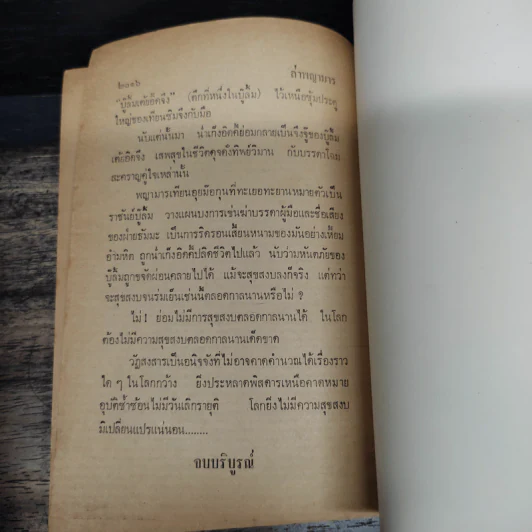 ๒๓๑๖ ล่าพญามาร
"บู๊ลิ้มเต้ยอิดจึง" (ตึกที่หนึ่งในบู๊ลิ้ม) ไว้เหนือซุ้มประตู
ใหญ่ของเทียนซิมจึงกับมือ
นับแต่นั้นมา น่ำเก็งอิดคี้ย่อมกลายเป็นจึงจู๊ของบู๊ลิ้ม
เต้ยอิดจึง เสพสุขในชีวิตดุจดั่งทิพย์วิมาน กับบรรดาโฉม
สะคราญคู่ใจเหล่านั้น
พญามารเทียนอุยมือกุนที่ทะเยอทะยานหมายตัวเป็น
ราชันย์บู๊ลิ้ม วางแผนบงการเข่นฆ่าบรรดาผู้มือและชื่อเสียง
ของฝ่ายธัมมะ เป็นการริดรอนเสี้ยนหนามของมันอย่างเหี้ยม
อำมหิต ถูกน่ำเก็งอิดคี้ปลิดชีวิตไปแล้ว นับว่ามหันตภัยของ
บู๊ลิ้มถูกขจัดผ่อนคลายไปได้ แม้จะสุขสงบลงก็จริง แต่ทว่า
จะสุขสงบจนร่มเย็นเช่นนี้ตลอดกาลนานหรือไม่ ?
ไม่ ! ย่อมไม่มีการสุขสงบตลอดกาลนานได้ ในโลก
ต้องไม่มีความสุขสงบตลอดกาลนานเด็ดขาด
วัฏสงสารเป็นอนิจจังที่ไม่อาจคาดคำนวณได้เรื่องราว
ใด ๆ ในโลกกว้าง ยิ่งประหลาดพิสดารเหนือคาดหมาย
อุบัติซ้ำซ้อนไม่มีวันเลิกรายุติ โลกยิ่งไม่มีความสุขสงบ
มิเปลี่ยนแปรแน่นอน........
จบบริบูรณ์